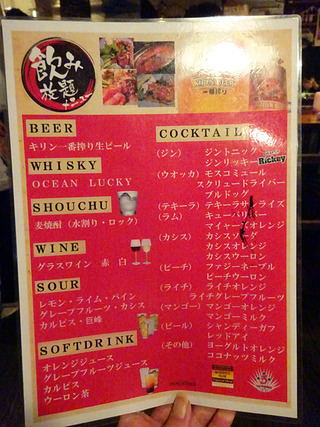 飲み
放題
BEER
キリン一番搾り生ビール
WHISKY
OCEAN LUCKY
SHOUCHU
麦焼酎（水割り・ロック）
WINE
グラスワイン 赤 白
SOUR
レモン・ライム・パイン
グレープフルーツ・カシス
カルピス・巨峰
SOFTDRINK
オレンジジュース
グレープフルーツジュース
カルピス
ウーロン茶
一番搾り
COCKTAIL
(ジン) ジントニック
ジンリッキー
Rickey
(ウオッカ) モスコミュール
スクリュードライバー
ブルドッグ
(テキーラ) テキーラサンライズ
(ラム) キューバリバー
マイヤーズオレンジ
(カシス) カシスソーダ
カシスオレンジ
カシスウーロン
(ピーチ) ファジーネーブル
ピーチウーロン
(ライチ) ライチオレンジ
ライチグレープフルーツ
(マンゴー) マンゴーオレンジ
マンゴーミルク
(ビール) シャンディーガフ
レッドアイ
(その他) ヨーグルトオレンジ
ココナッツミルク